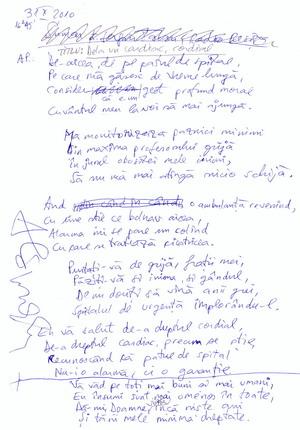 3 IX 2010
TITLU: De la un cardiac, cordial
De-aicea, de pe patul de spital,
Pe care mă găsesc de vreme lungă,
Consider gest profund moral
că e un
Cuvântul meu la voi să mai ajungă.
Mă monitorizează paznici minimi
Din maxima profesorului grijă
În jurul obositei mele inimi,
Să nu mă mai atingă nicio schijă.
Aud o ambulanță revenind,
Cu cine știe ce bolnav aicea,
Alarma mi se pare un colind
Cu care se tratează cicatricea.
Purtați-vă de grijă, frații mei,
Păziți-vă și inima, și gândul,
De nu doriți să vină anii grei,
Spitalul de urgență implorându-l.
Eu vă salut de-a dreptul cordial,
De-a dreptul cardiac, precum se știe,
Recunoscând că patul de spital
Nu-i o alarmă, ci o garanție
Vă văd pe toți mai buni și mai umani,
Eu însumi sunt mai omenos în toate,
Dă-mi, Doamne, încă niște ani
Și țării mele minima dreptate.